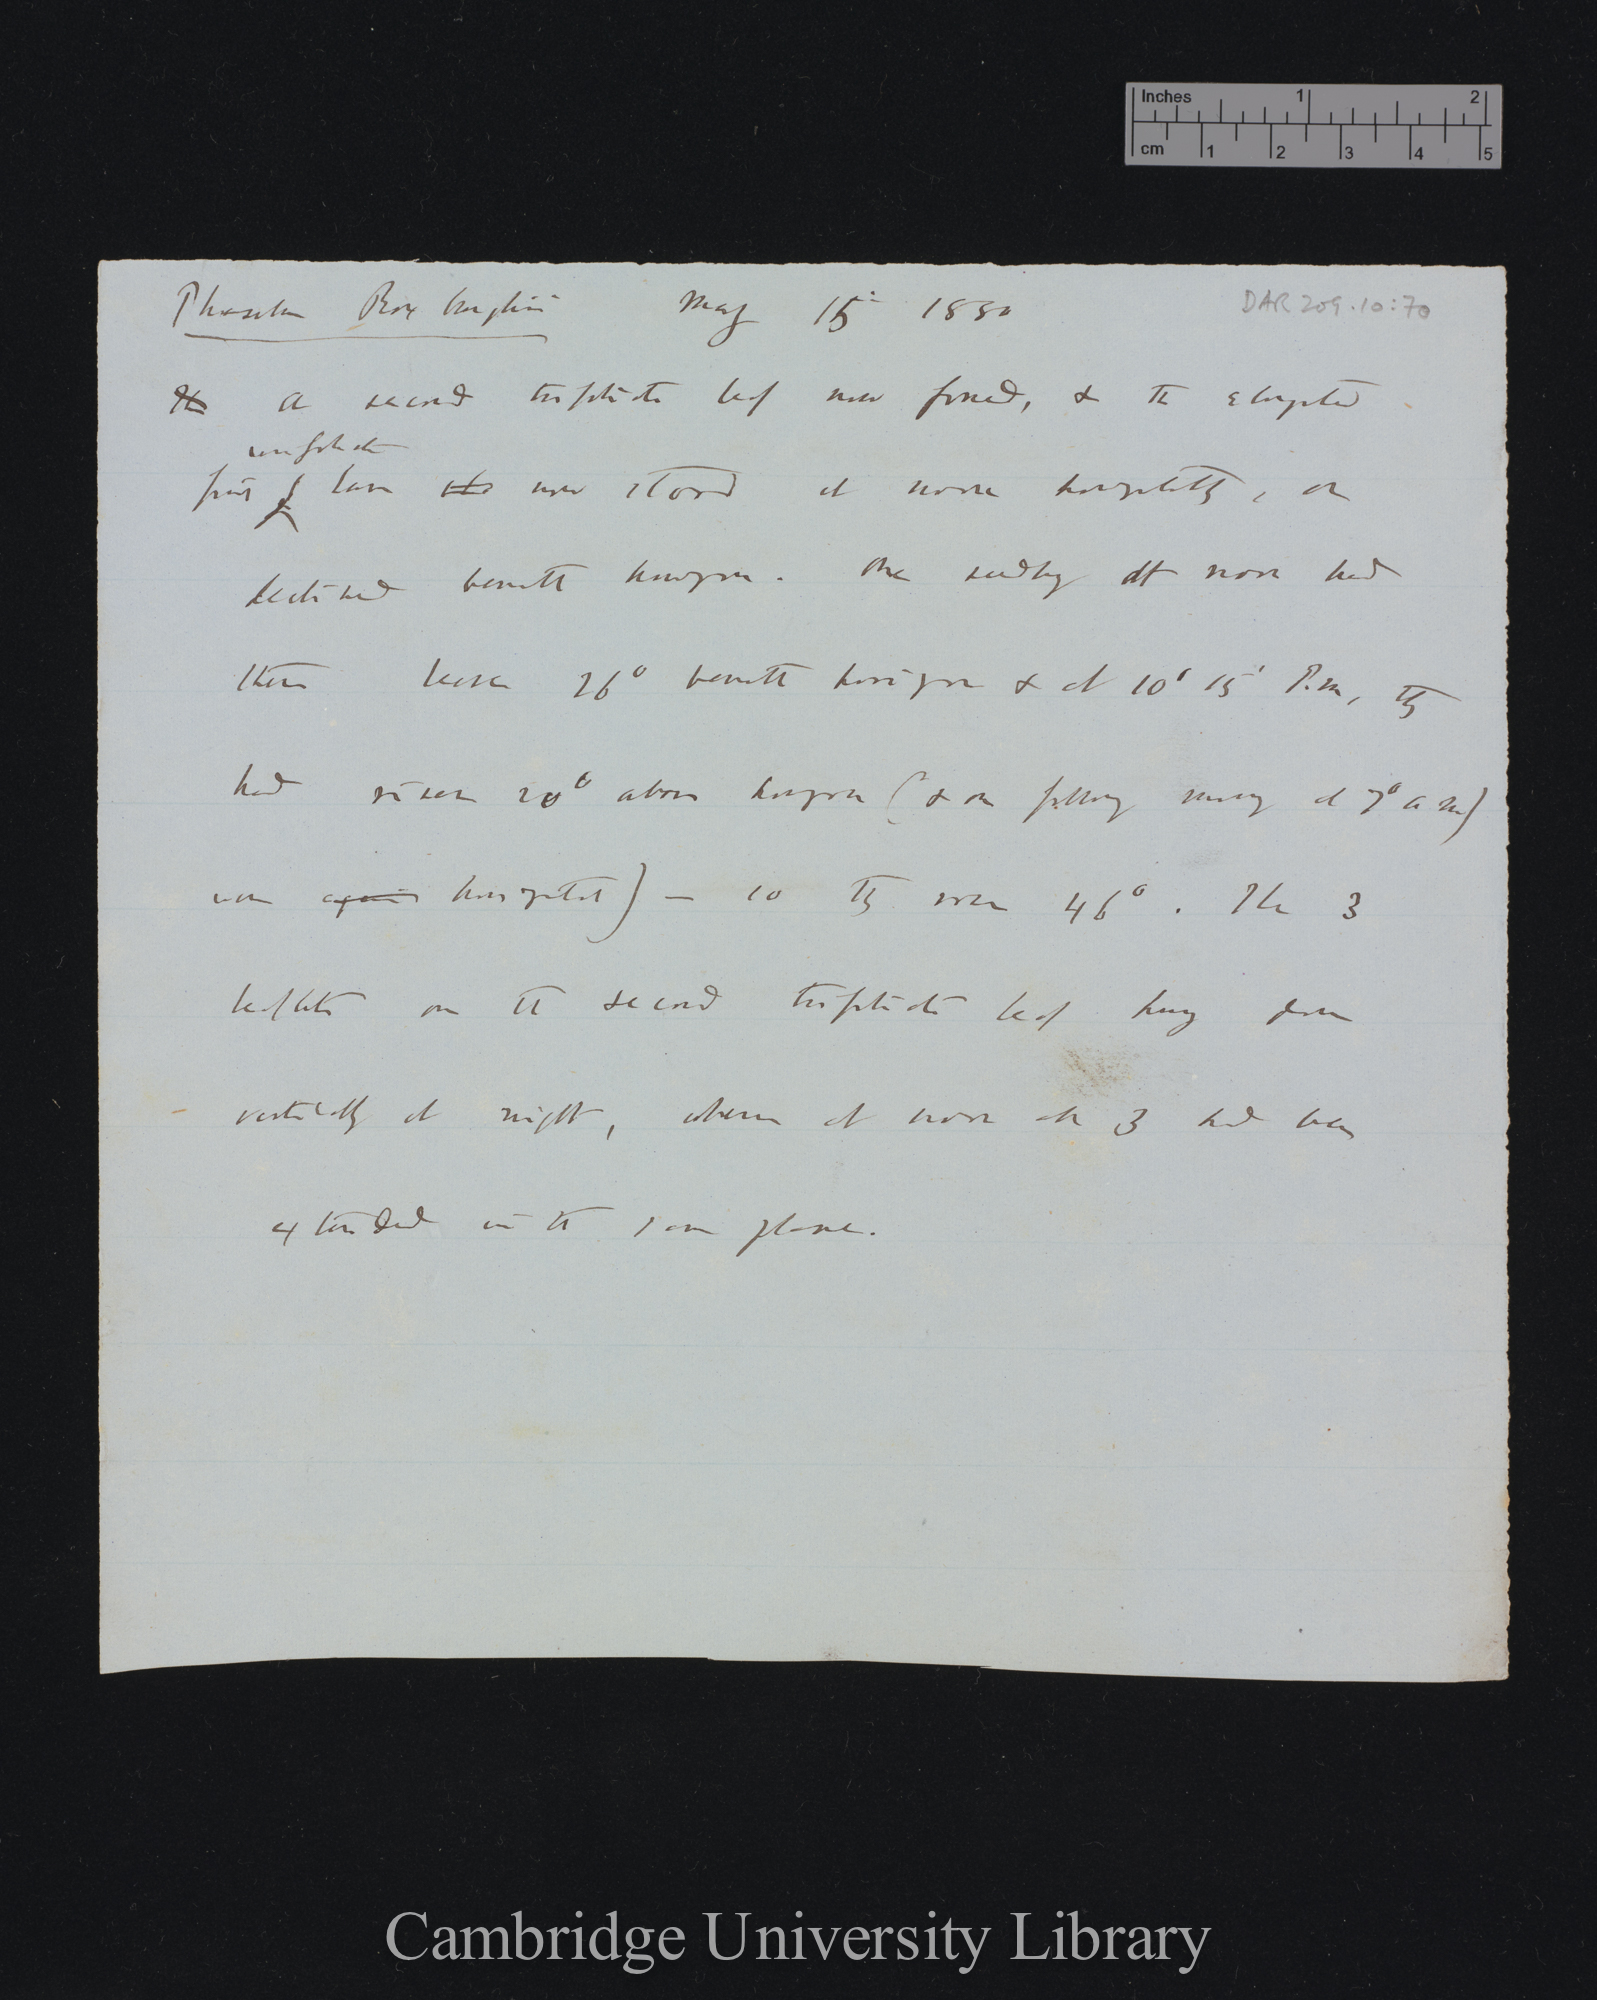 Inches 1 2
cm 1 2 3 4 5
Phaseolus Roxburghii May 15th 1880 DAR 209.10:70
A second trifoliate leaf now formed, & the
unifoliate
first leaves now stood at noon horizontally, or
declined beneath horizon. One seedling at noon had
them beneath horizon & at 10° 15' P.m, they
had risen 20° above horizon (& on following morning at 7° a m)
were again horizontal) — so they rose 46°. The 3
leaflets on the second trifoliate leaf hung down
vertically at night, whereas at noon the 3 had been
extended in the same plane.
Cambridge University Library